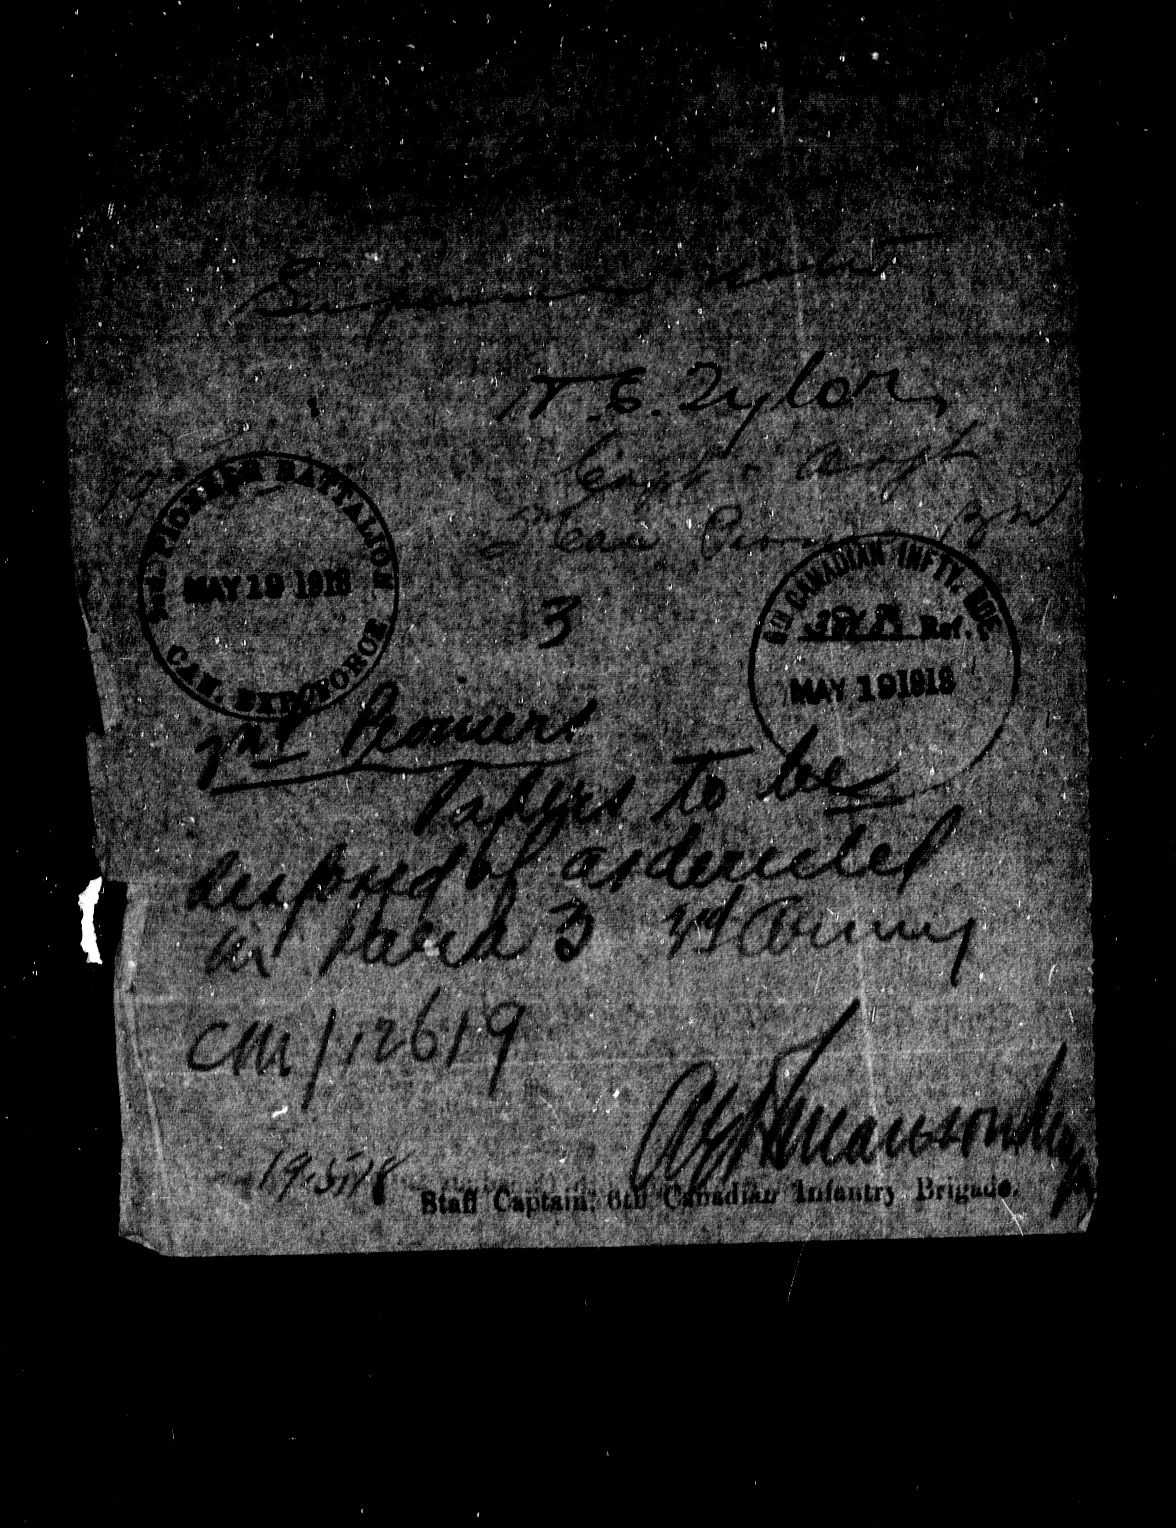 N. E. Tylor,
Capt & Adjt
2nd Can Pioneer Bn
2ND PIONEER BATTALION
MAY 19 1918
CAN. EXP. FORCE
6TH CANADIAN INFTY. BDE.
Ref.
MAY 19 1918
3
2nd Pioneers
Papers to be
disposed of as directed
in para 3 2nd Army
CM/12619
19.5.18
Staff Captain, 6th Canadian Infantry Brigade.